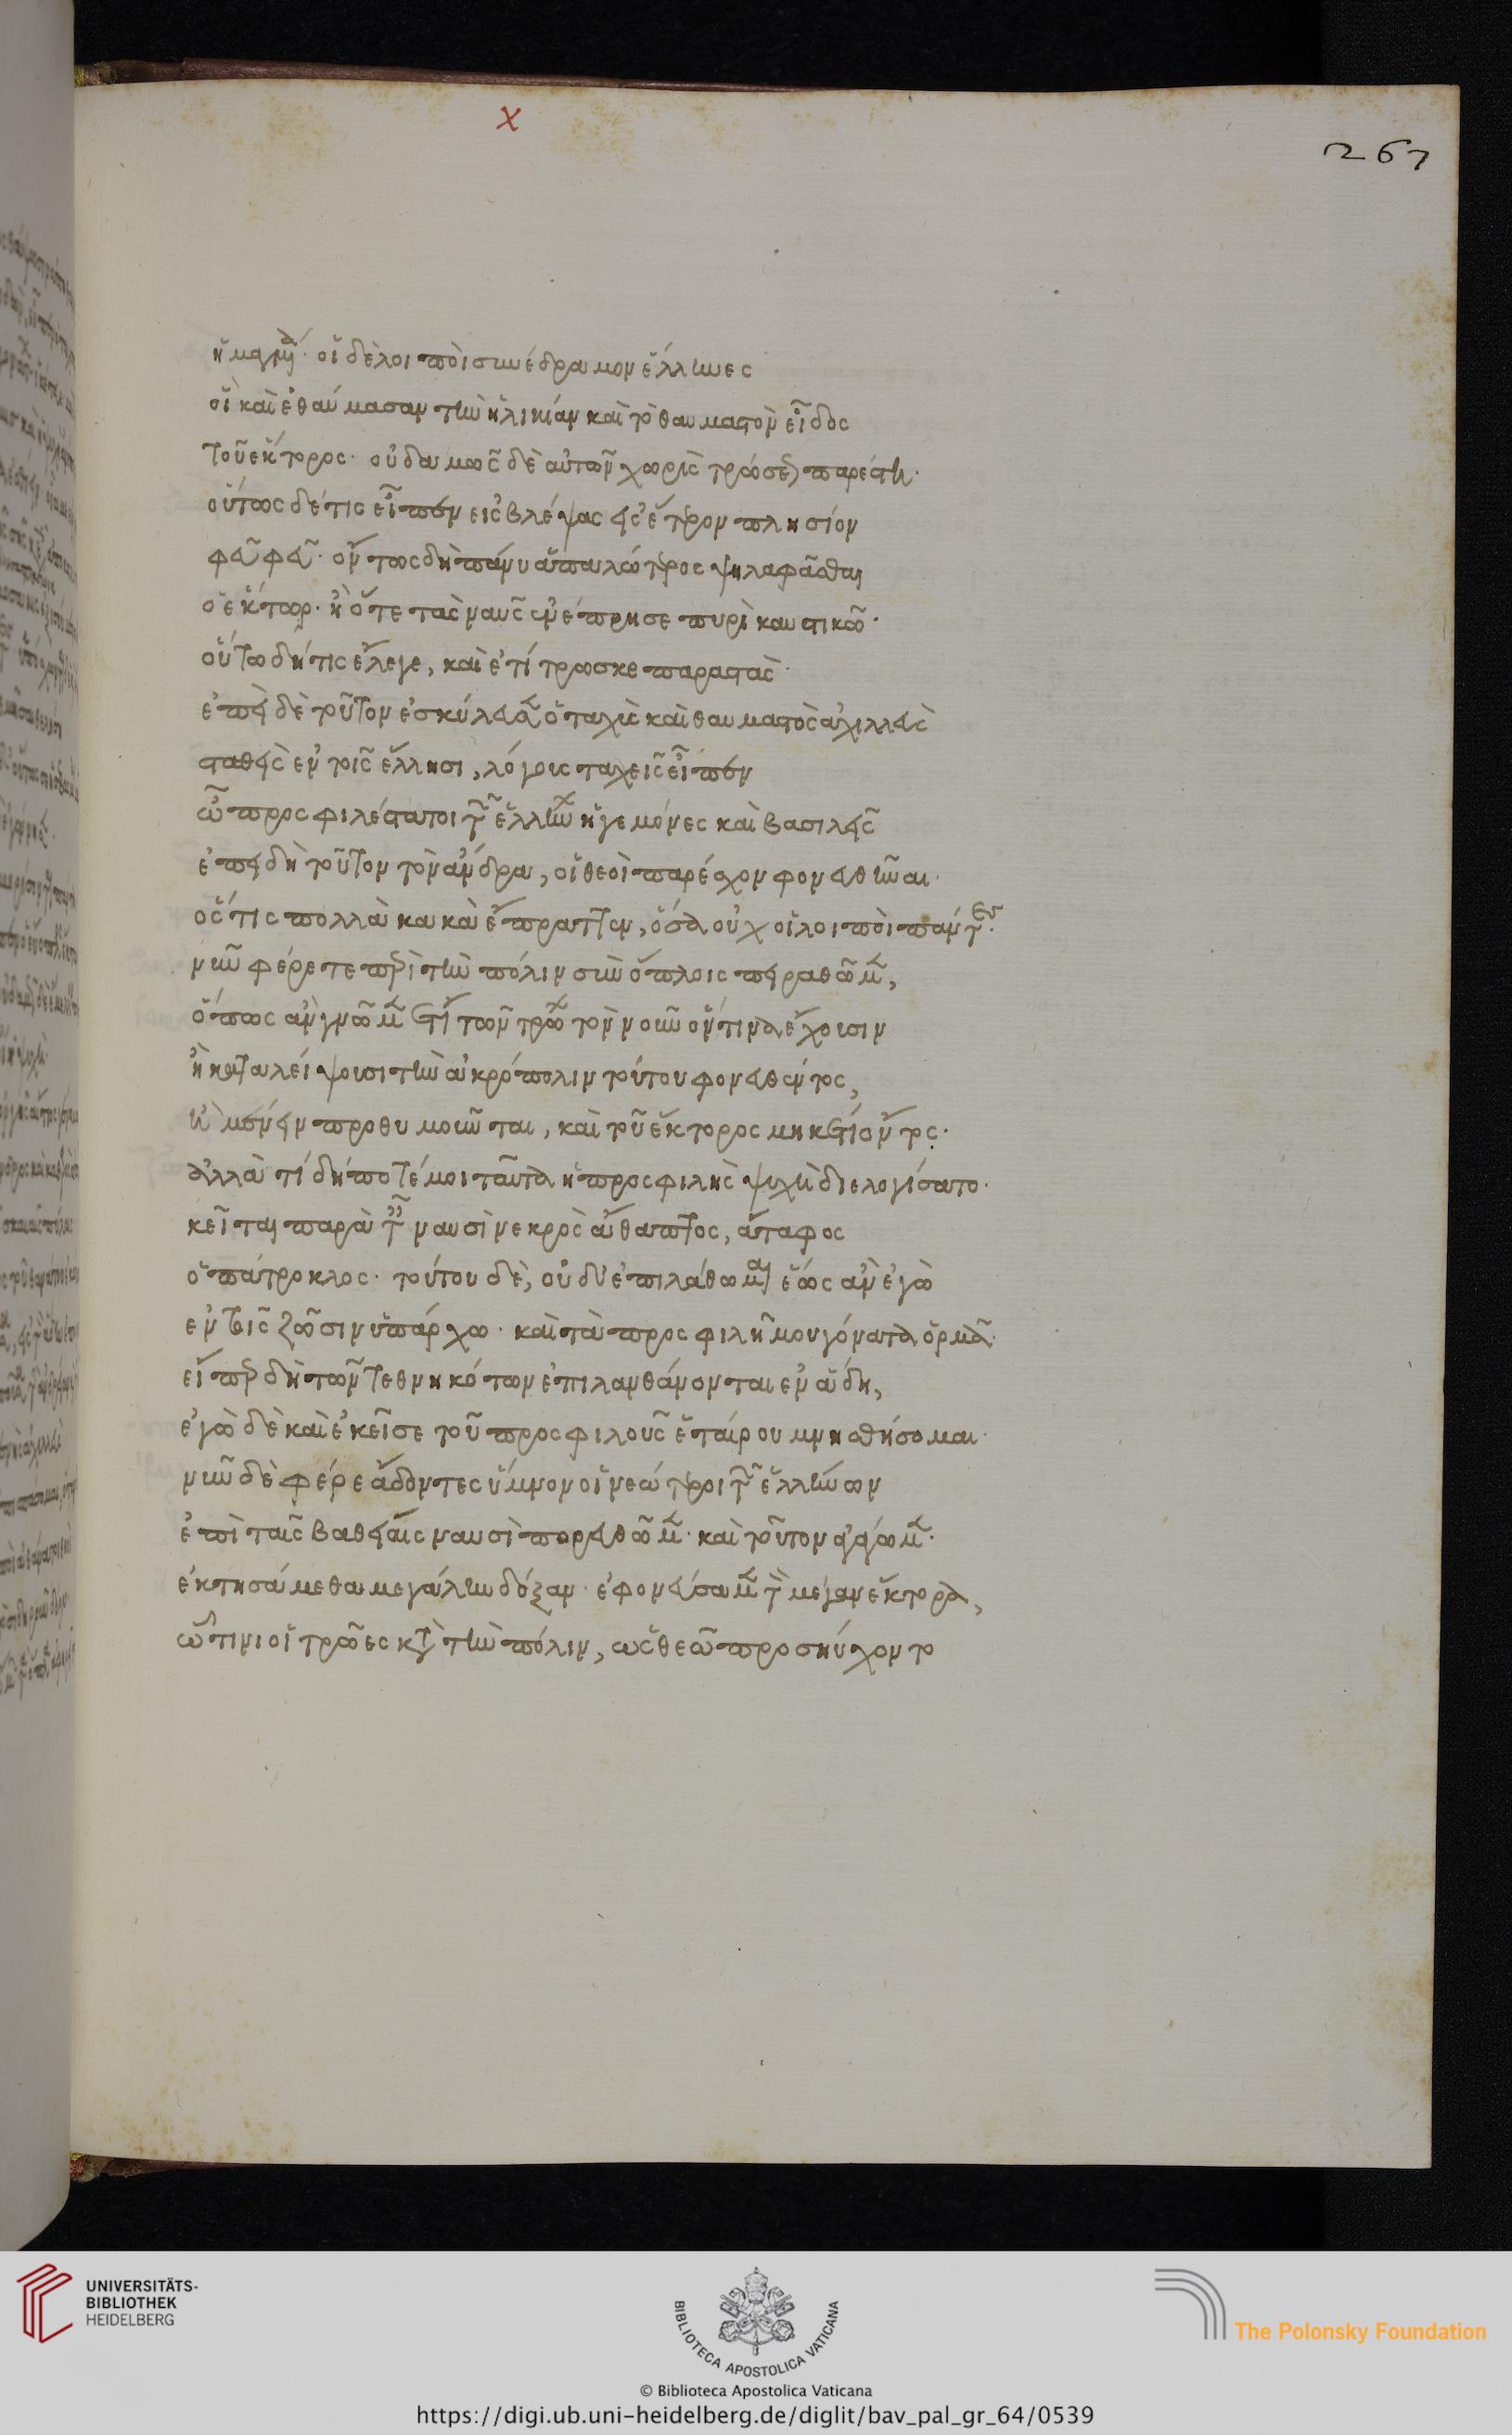 χ
267
οἱ δὲ λοιποὶ συνέδραμον ἕλληνες
οἳ καὶ ἐθαύμασαν τὴν ἡλικίαν καὶ τὸ θαυμαστὸν εἶδος
τοῦ ἕκτορος· οὐδαμῶς δὲ αὐτῶν χωρὶς τρώσεως παρέστη·
οὕτως δέ τις εἶπεν εἰσβλέψας εἰς ἕτερον πλησίον
φεῦ φεῦ· ὄντως δὴ πάνυ ἁπαλώτερος ψηλαφᾶσθαι
ὁ ἕκτωρ· ἢ ὅτε τὰς ναῦς ἐνέπρησε πυρὶ καυστικῶ·
οὕτω δή τις ἔλεγε, καὶ ἐτίτρωσκε παραστάς·
ἐπεὶ δὲ τοῦτον ἐσκύλευσεν ὁ ταχὺς καὶ θαυμαστὸς ἀχιλλεὺς
σταθεὶς ἐν τοῖς ἕλλησι, λόγους ταχεῖς εἶπεν
ὦ προσφιλέστατοι τῶν ἑλλήνων ἡγεμόνες καὶ βασιλεῖς
ἐπειδὴ τοῦτον τὸν ἄνδρα, οἱ θεοὶ παρέσχον φονευθῆναι·
ὅστις πολλὰ κακὰ ἔπραττεν, ὅσα οὐχ οἱ λοιποὶ πάντες·
νῦν φέρετε περὶ τὴν πόλιν σὺν ὅπλοις πειραθῶμεν,
ὅπως ἂν γνῶμεν ἔτι τῶν τρώων τὸν νοῦν ὅντινα ἔχουσιν
ἢ καταλείψουσι τὴν ἀκρόπολιν τούτου φονευθέντος,
ἢ μένειν προθυμοῦνται, καὶ τοῦ ἕκτορος μηκέτι ὄντος·
ἀλλὰ τί δήποτέ μοι ταῦτα ἡ προσφιλὴς ψυχὴ διελογίσατο·
κεῖται παρὰ ταῖς ναυσὶ νεκρὸς ἄθαπτος, ἄταφος
ὁ πάτροκλος· τούτου δὲ, οὐδ' ἐπιλάθωμαι ἕως ἂν ἐγὼ
ἐν τοῖς ζῶσιν ὑπάρχω· καὶ τὰ προσφιλῆ μου γόνατα ὁρμᾶ·
εἴπερ δὴ τῶν τεθνηκότων ἐπιλανθάνονται ἐν ἅδη,
ἐγὼ δὲ καὶ ἐκεῖσε τοῦ προσφιλοῦς ἑταίρου μνησθήσομαι·
νῦν δὲ φέρε ἄδοντες ὕμνον οἱ νεώτεροι τῶν ἑλλήνων
ἐπὶ ταῖς βαθείαις ναυσὶ πορευθῶμεν· καὶ τοῦτον ἀγάγωμεν·
ἐκτησάμεθα μεγάλην δόξαν· ἐφονεύσαμεν τὸν μέγαν ἕκτορα,
ὧτινι οἱ τρῶες κατὰ τὴν πόλιν, ὡς θεῶ προσηύχοντο
UNIVERSITÄTS-
BIBLIOTHEK
HEIDELBERG
BIBLIOTECA APOSTOLICA VATICANA
The Polonsky Foundation
© Biblioteca Apostolica Vaticana
https://digi.ub.uni-heidelberg.de/diglit/bav_pal_gr_64/0539